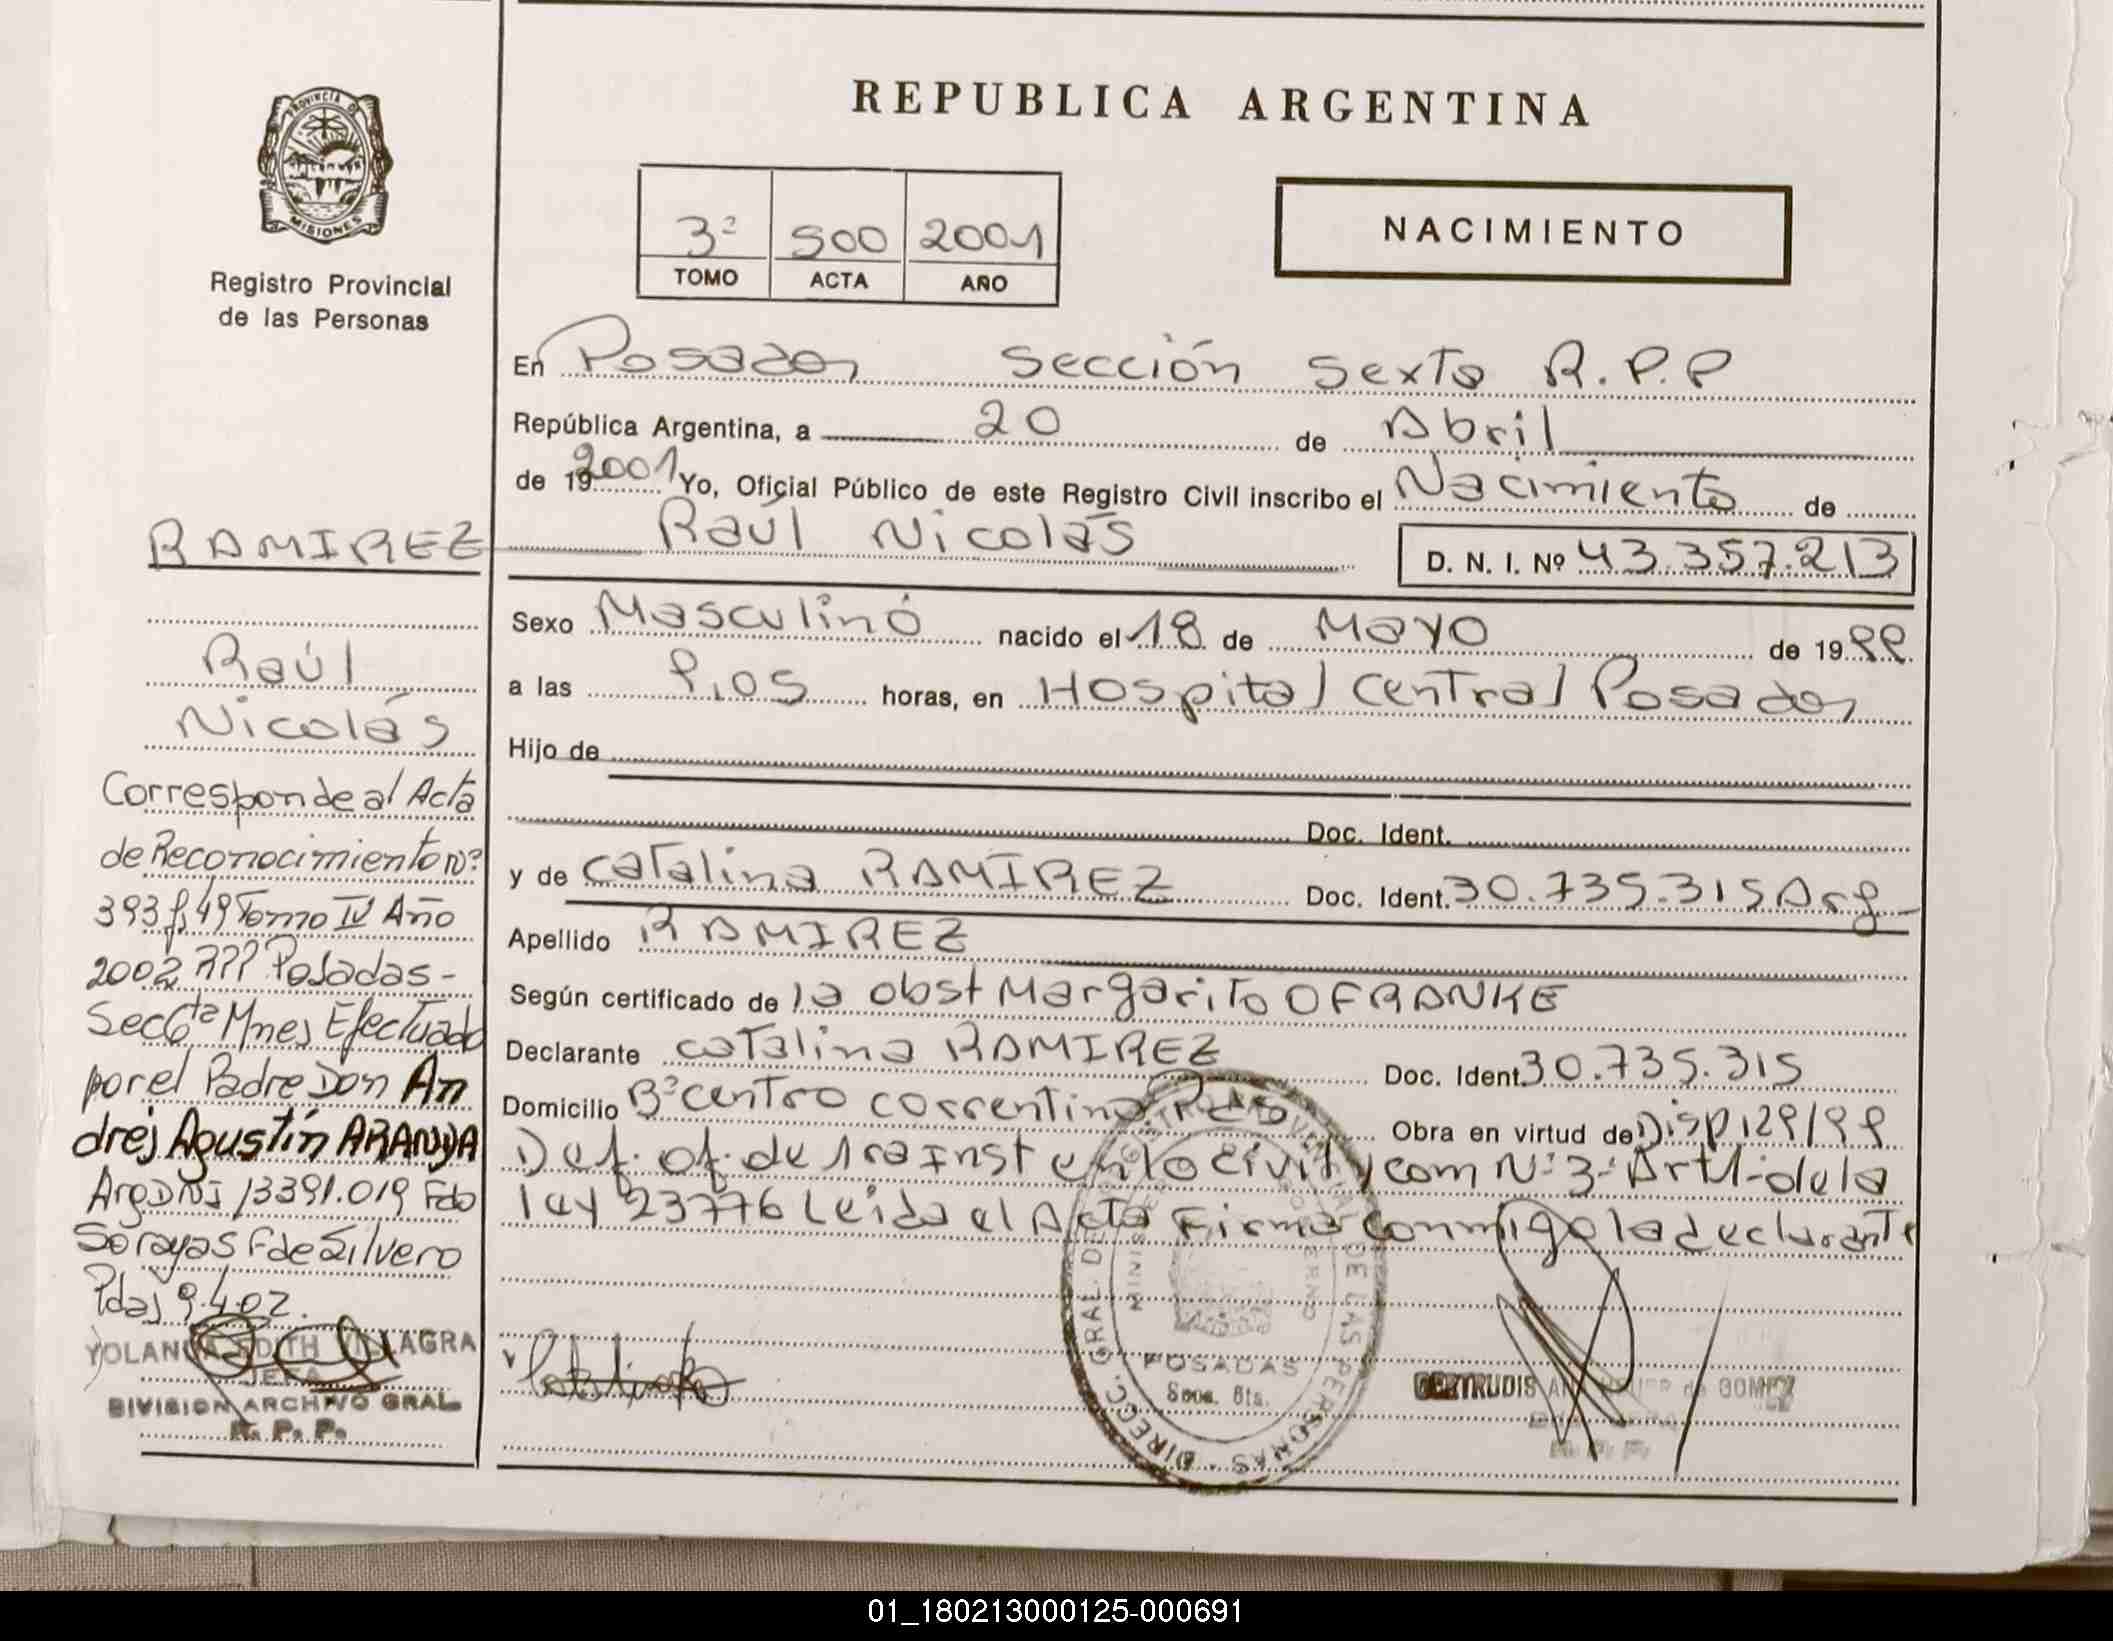 PROVINCIA DE
MISIONES
Registro Provincial
de las Personas
REPUBLICA ARGENTINA
3º 500 2001
TOMO ACTA AÑO
NACIMIENTO
En Posadas Sección Sexta R.P.P
República Argentina, a 20 de Abril
de 19 2001 Yo, Oficial Público de este Registro Civil inscribo el Nacimiento de
Raúl Nicolás
D. N. I. Nº 43.357.213
Sexo Masculino nacido el 18 de Mayo de 1999
a las 9,05 horas, en Hospital Central Posadas
Hijo de
Doc. Ident.
y de Catalina RAMIREZ Doc. Ident. 30.735.315 Arg
Apellido RAMIREZ
Según certificado de la obst Margarita O FRANKE
Declarante Catalina RAMIREZ Doc. Ident. 30.735.315
Domicilio Bº Centro Correntino Pdas Obra en virtud de Disp 129/99
Def. of. de 1ra Inst en lo Civil y Com Nº 3- Art 1- de la
ley 23776 Leida el Acta Firma conmigo la declarante
RAMIREZ
Raúl
Nicolás
Corresponde al Acta
de Reconocimiento Nº
393 fº 49 Tomo IV Año
2002 RPP Posadas -
Sec 6ta Mnes Efectuado
por el Padre Don An
drés Agustín ARANDA
Arg DNI 13391.019 Fdo
Soraya S F de Silvero
Pdas 9.4.02.
YOLANDA EDITH VILLAGRA
JEFA
DIVISION ARCHIVO GRAL.
R. P. P.
Catalina
DIRECC. GRAL. DEL REGISTRO PROVINCIAL DE LAS PERSONAS
POSADAS
Secc. 6ta.
GERTRUDIS de GOMEZ
R. P. P.
01_180213000125-000691